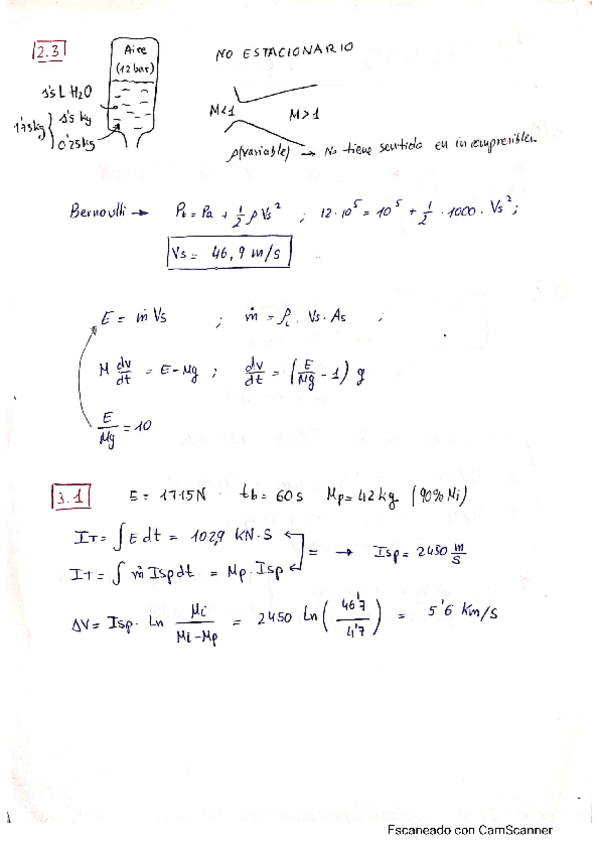 2.3
Aire
(12 bar)
NO ESTACIONARIO
1's L H2O
1's kg
1'75kg
0'25kg
M<1
M>1
ρ(variable) → No tiene sentido en incompresibles.
Bernoulli → Pi = Pa + 1/2 ρ Vs² ; 12·10⁵ = 10⁵ + 1/2 · 1000 · Vs² ;
Vs = 46,9 m/s
E = ṁ Vs ; ṁ = ρL · Vs · As ;
M dv/dt = E - Mg ; dv/dt = (E/Mg - 1) g
E/Mg = 10
3.1 E = 1715N tb = 60s Mp = 42kg (90% Mi)
IT = ∫ E dt = 102,9 kN·S
= → Isp = 2450 m/s
IT = ∫ ṁ Isp dt = Mp · Isp
ΔV = Isp · Ln Mi/(Mi - Mp) = 2450 Ln (46'7/4'7) = 5'6 Km/s
Escaneado con CamScanner